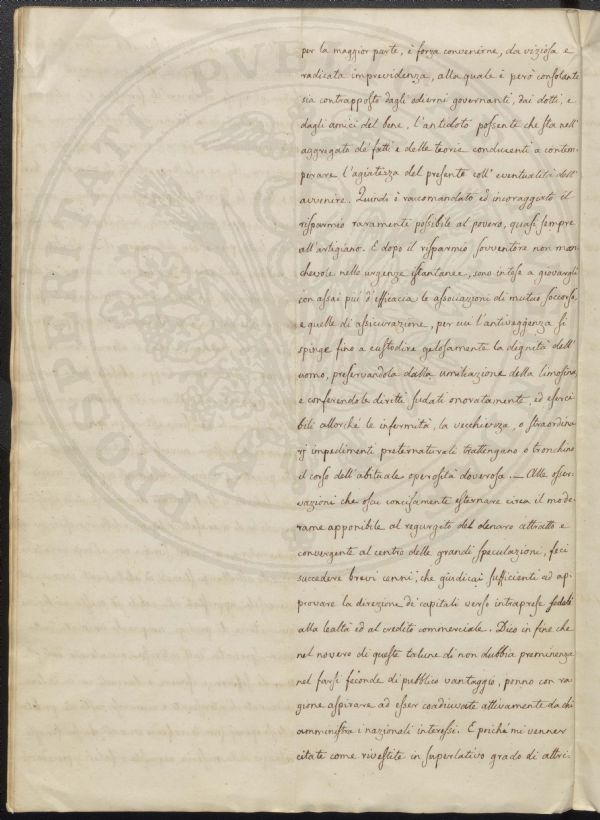 per la maggior parte, è forza convenirne, da viziosa e
radicata imprevidenza, alla quale è però consolante
sia contrapposto dagli odierni governanti, dai dotti, e
dagli amici del bene, l'antidoto possente che sta nell'
aggregato de' fatti e delle teorie conducenti a contem-
perare l'agiatezza del presente coll'eventualità dell'
avvenire. Quindi è raccomandato ed incoraggiato il
risparmio raramente possibile al povero, quasi sempre
all'artigiano. E dopo il risparmio sovventore non man
chevole nelle urgenze istantanee, sono intese a giovargli
con assai più d'efficacia le associazioni di mutuo soccorso
e quelle di assicurazione, per cui l'antiveggenza si
spinge fino a custodire gelosamente la dignità dell'
uomo, preservandola dalla umiliazione della limosina,
e conferendole diritti sudati onoratamente, ed eserci
bili allorché le infermità, la vecchiezza, o straordina
rj impedimenti preternaturali trattengano o tronchino
il corso dell'abituale operosità doverosa. — Alle osser-
vazioni che osai concisamente esternare circa il mode-
rame apponibile al regurgito del denaro attratto e
convergente al centro delle grandi speculazioni, feci
succedere brevi cenni, che giudicai sufficienti ad ap-
provare la direzione di capitali verso intraprese fedeli
alla lealtà ed al credito commerciale. Dico in fine che
nel novero di queste talune di non dubbia preminenza
nel farsi feconde di pubblico vantaggio, ponno con ra
gione aspirare ad esser coadiuvate attivamente da chi
amministra i nazionali interessi. E poiché mi venner
citate come rivestite in superlativo grado di attri-